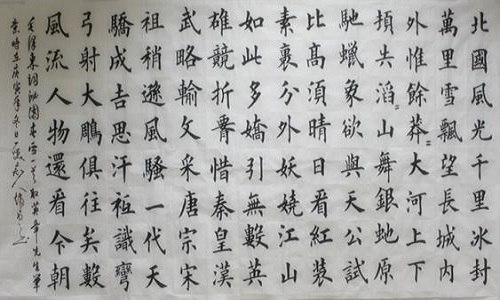 北國風光千里冰封
萬里雪飄望長城内
外惟餘莽〻大河上下
頓失滔〻山舞銀蛇原
馳蠟象欲與天公試
比高須晴日看紅裝
素裹分外妖嬈江山
如此多嬌引無數英
雄競折惜秦皇漢
武略輸文采唐宗宋
祖稍遜風騷一代天
驕成吉思汗祗識彎
弓射大鵰俱往矣數
風流人物還看今朝
毛澤東詞沁園春雪一首取英章先生筆
意時在庚寅年冬日